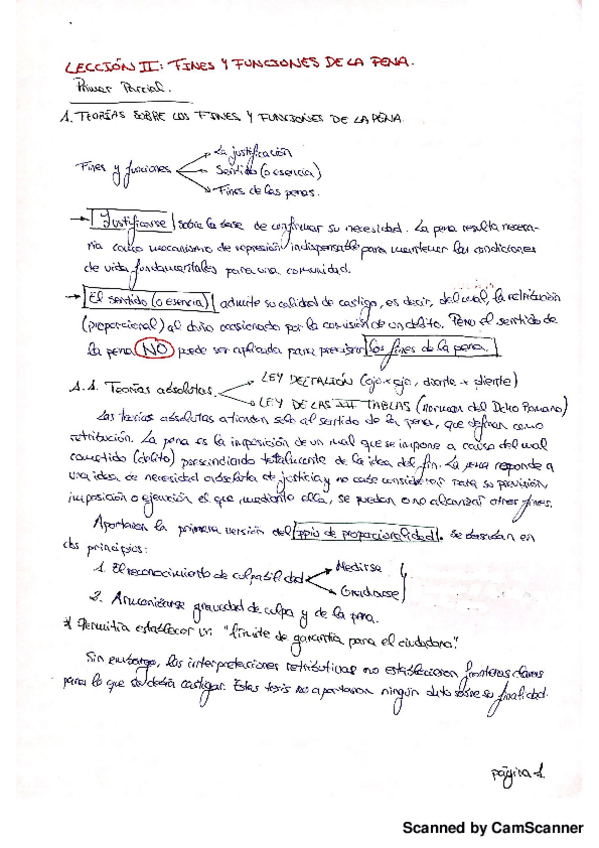 LECCIÓN II: FINES Y FUNCIONES DE LA PENA.
Primer Parcial.
1. TEORÍAS SOBRE LOS FINES Y FUNCIONES DE LA PENA.
La justificación
Fines y funciones
Sentido (o esencia)
Fines de las penas.
→ Justificarse sobre la base de confirmar su necesidad. La pena resulta necesa-
ria como mecanismo de represión indispensable para mantener las condiciones
de vida fundamentales para una comunidad.
→ El sentido (o esencia) admite su calidad de castigo, es decir, del mal, la retribución
(proporcional) al daño ocasionado por la comisión de un delito. Pero el sentido de
la pena NO puede ser aplicada para los fines de la pena.
1.1. Teorías absolutas
LEY DEL TALIÓN (ojo x ojo, diente x diente)
LEY DE LAS XII TABLAS (normas del Dcho Romano)
Las teorías absolutas atienden solo al sentido de la pena, que definen como
retribución. La pena es la imposición de un mal que se impone a causa del mal
cometido (delito) prescindiendo totalmente de la idea del fin. La pena responde a
una idea de necesidad absoluta de justicia y no cabe considerar para su previsión,
imposición o ejecución el que, mediante ella, se puedan o no alcanzar otros fines.
Aportaron la primera versión del ppio de proporcionalidad. Se basaban en
dos principios:
1. El reconocimiento de culpabilidad
Medirse
Graduarse
2. Armonizarse gravedad de culpa y de la pena.
* Permitía establecer un "límite de garantía para el ciudadano".
Sin embargo, las interpretaciones retributivas no establecieron fronteras claras
para lo que se debía castigar. Estas tesis no aportaron ningún dato sobre su finalidad.
página 1.
Scanned by CamScanner